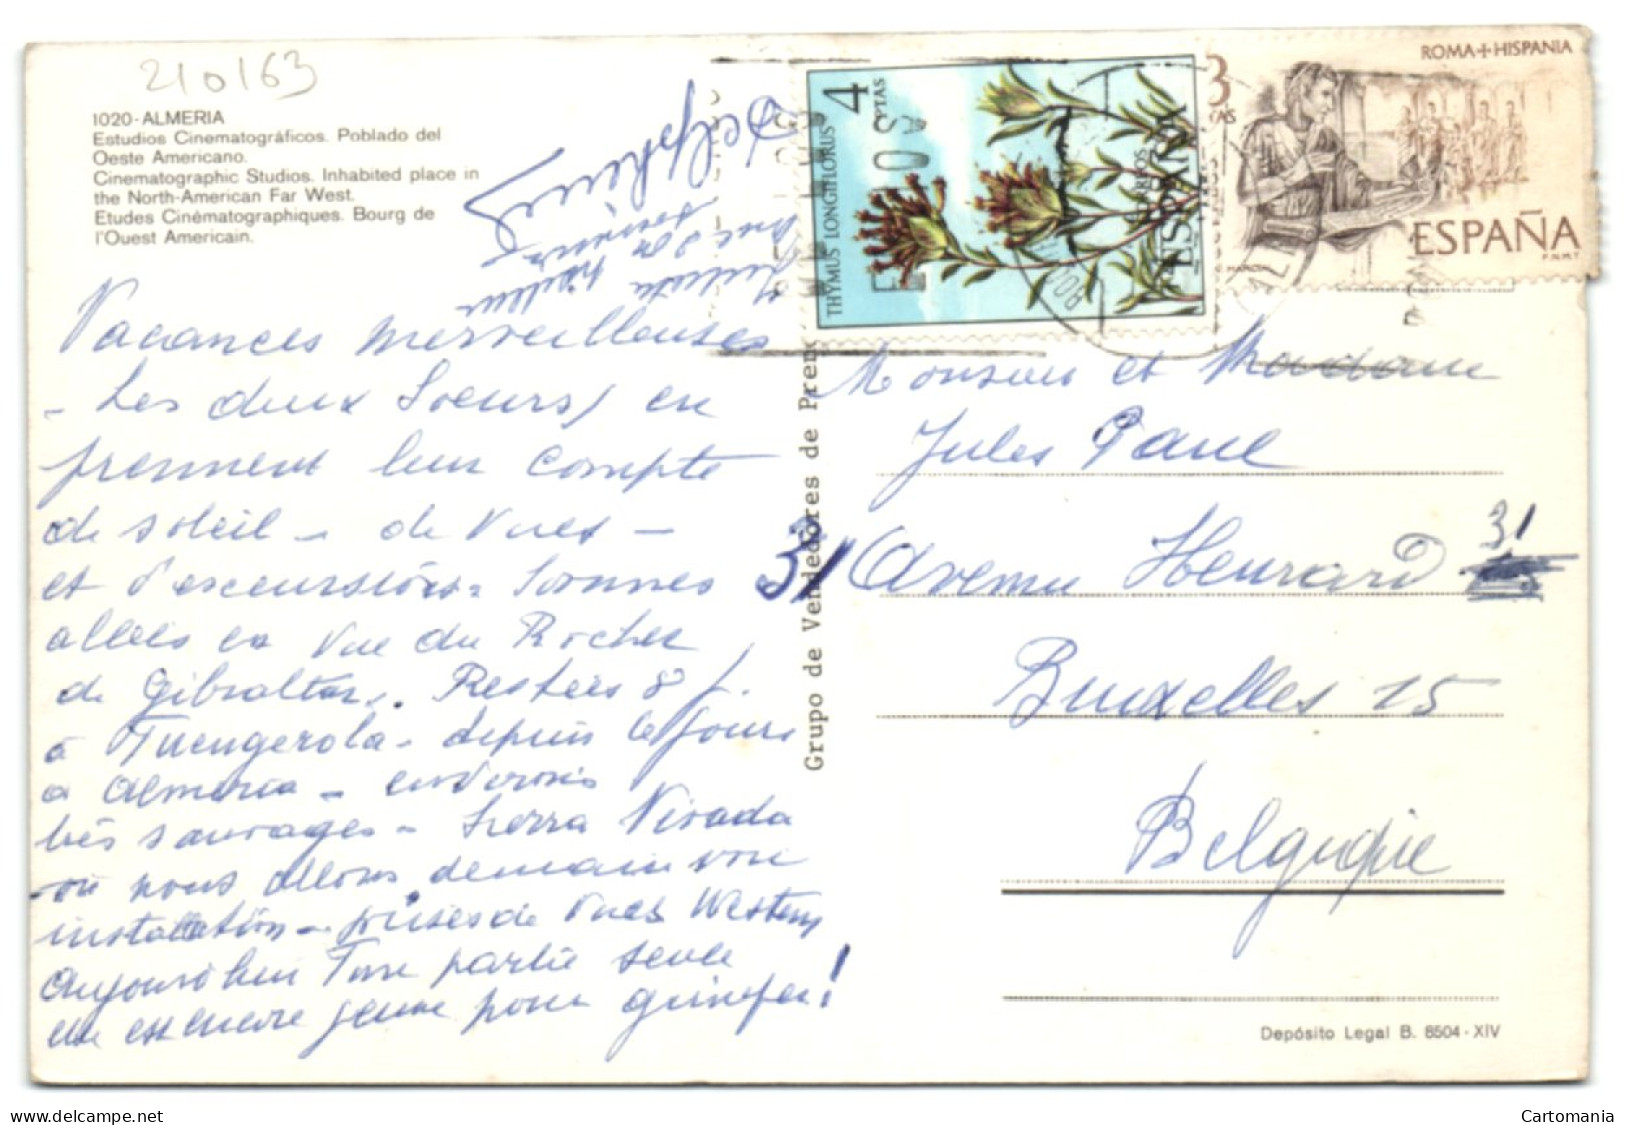 210163
1020-ALMERIA
Estudios Cinematográficos. Poblado del
Oeste Americano.
Cinematographic Studios. Inhabited place in
the North-American Far West.
Etudes Cinématographiques. Bourg de
l'Ouest Americain.
Vacances merveilleuses
- Les deux Soeurs, en
prennent leur compte
de soleil - de vues -
et d'excursions. Sommes
allées en vue du Rocher
de Gibraltar. Restées 8 j.
à Fuengerola - depuis le jours
à Almeria - environs
très sauvages - Sierra Nivada
où nous allons demain voir
installation - prises de vues Western
Aujourd'hui partie seule
encore jeune pour grimper!
Delphine
4
PTAS
THYMUS LONGIFLORUS
ESPAÑA
3
PTAS
ROMA+HISPANIA
ESPAÑA
F.N.M.T.
Grupo de Vendedores de Prensa
Monsieur et Madame
Jules Paul
31 Avenue Henrard 31
Bruxelles 15
Belgique
Depósito Legal B. 8504 - XIV
Cartomania
www.delcampe.net